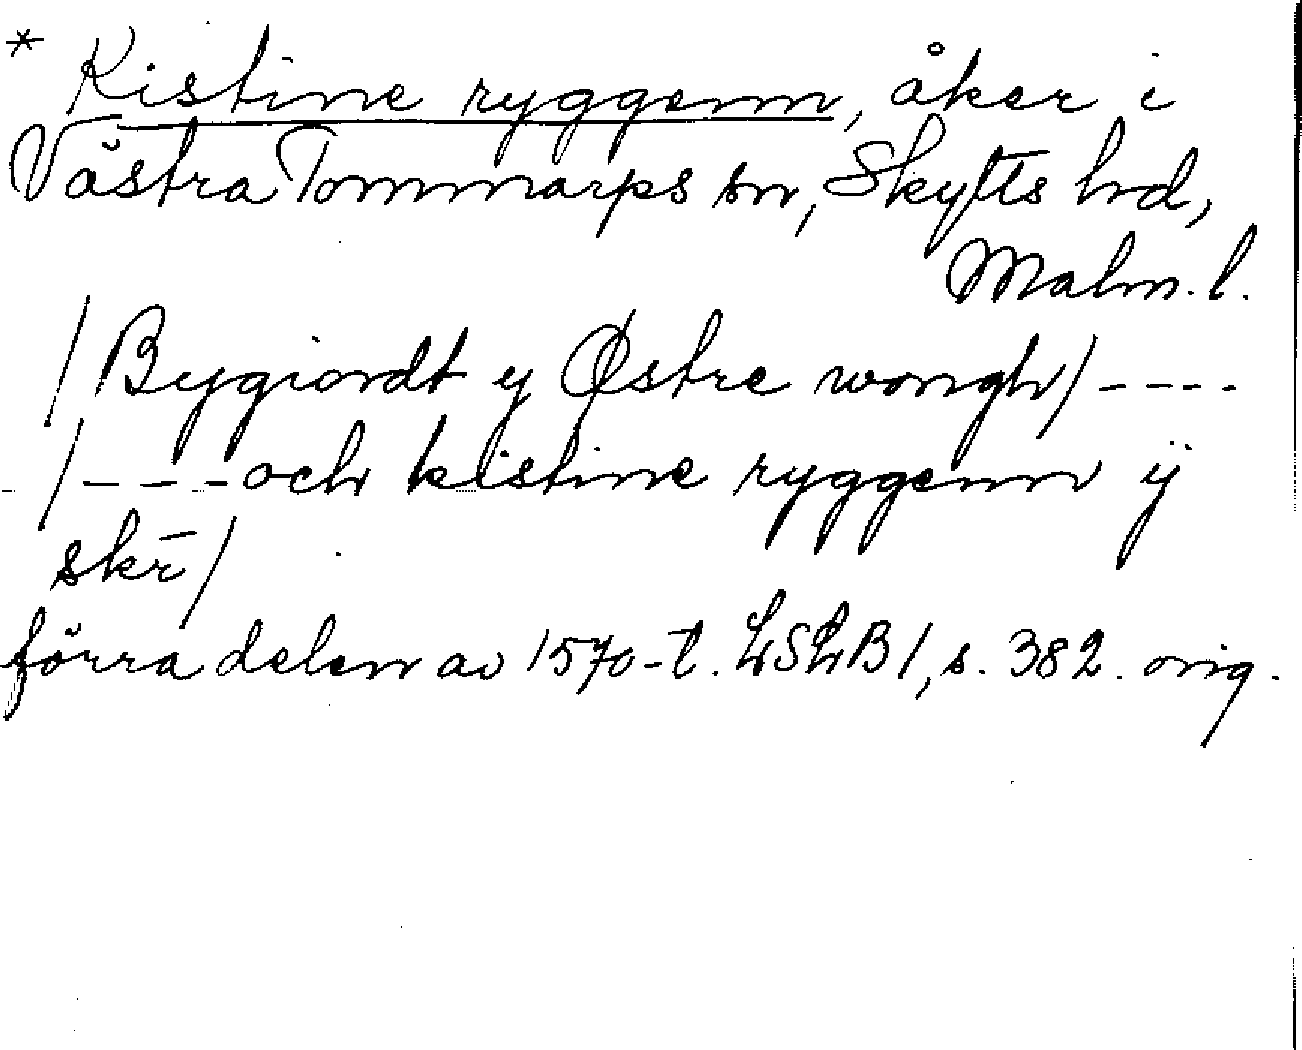 * Kistine ryggenn, åker i
Västra Tommarps sn, Skytts hd,
Malm. l.
/Bygiordt y Østre wongh/----
/----och kistine ryggenn ij
skr̄/
förra delen av 1570-t. LSLB1, s. 382. orig.